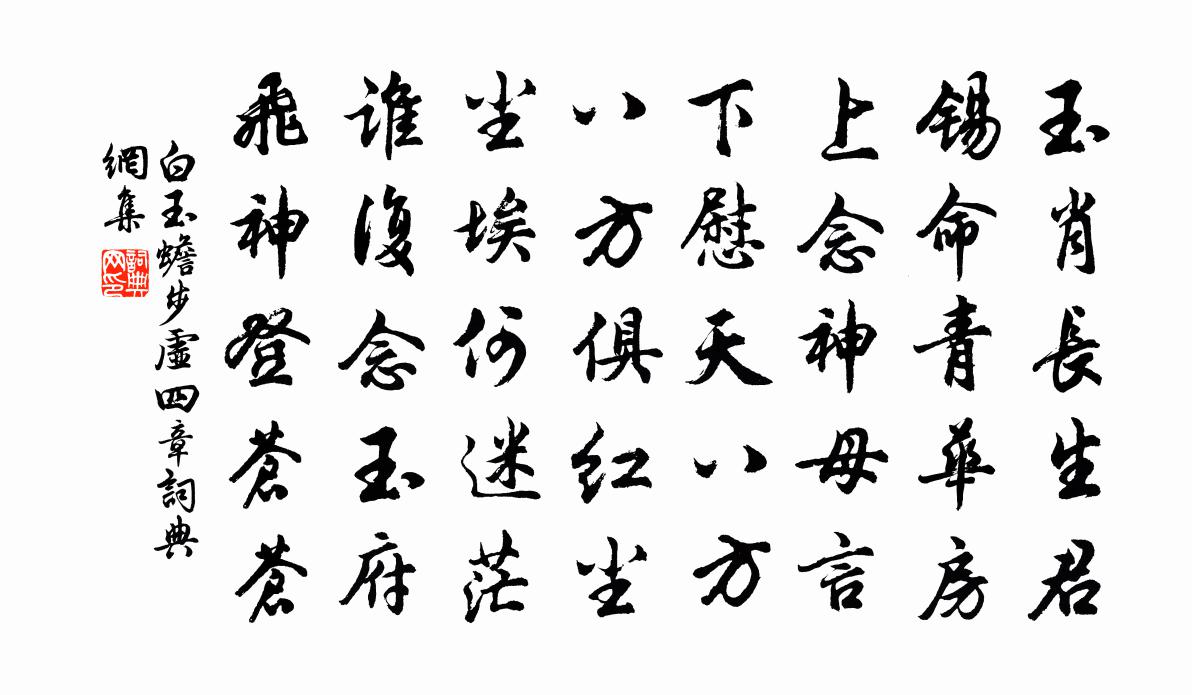 玉肖長生君
錫命青華房
上念神母言
下慰天八方
八方俱红尘
尘埃何迷茫
谁復念玉府
飛神登蒼蒼
白玉蟾步虛四章詞典
網集
詞典
网印